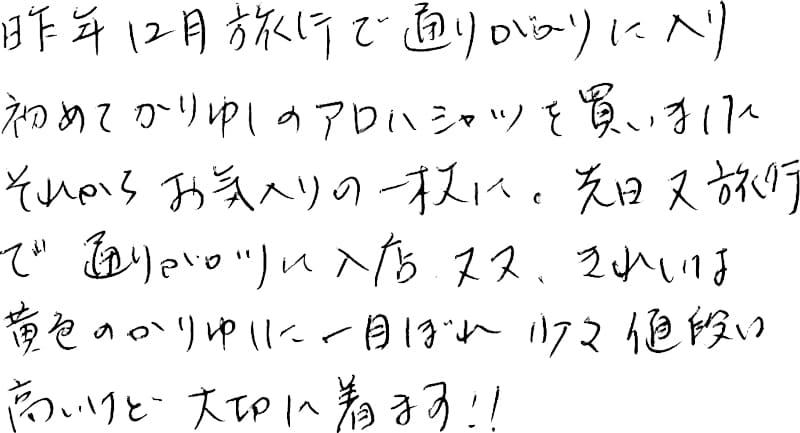 昨年12月旅行で通りがかりに入り
初めてかりゆしのアロハシャツを買いました
それからお気入りの一枚に。先日又旅行
で通りがかりに入店又又、きれいな
黄色のかりゆしに一目ぼれ 値段い
高いけど大切に着ます!!